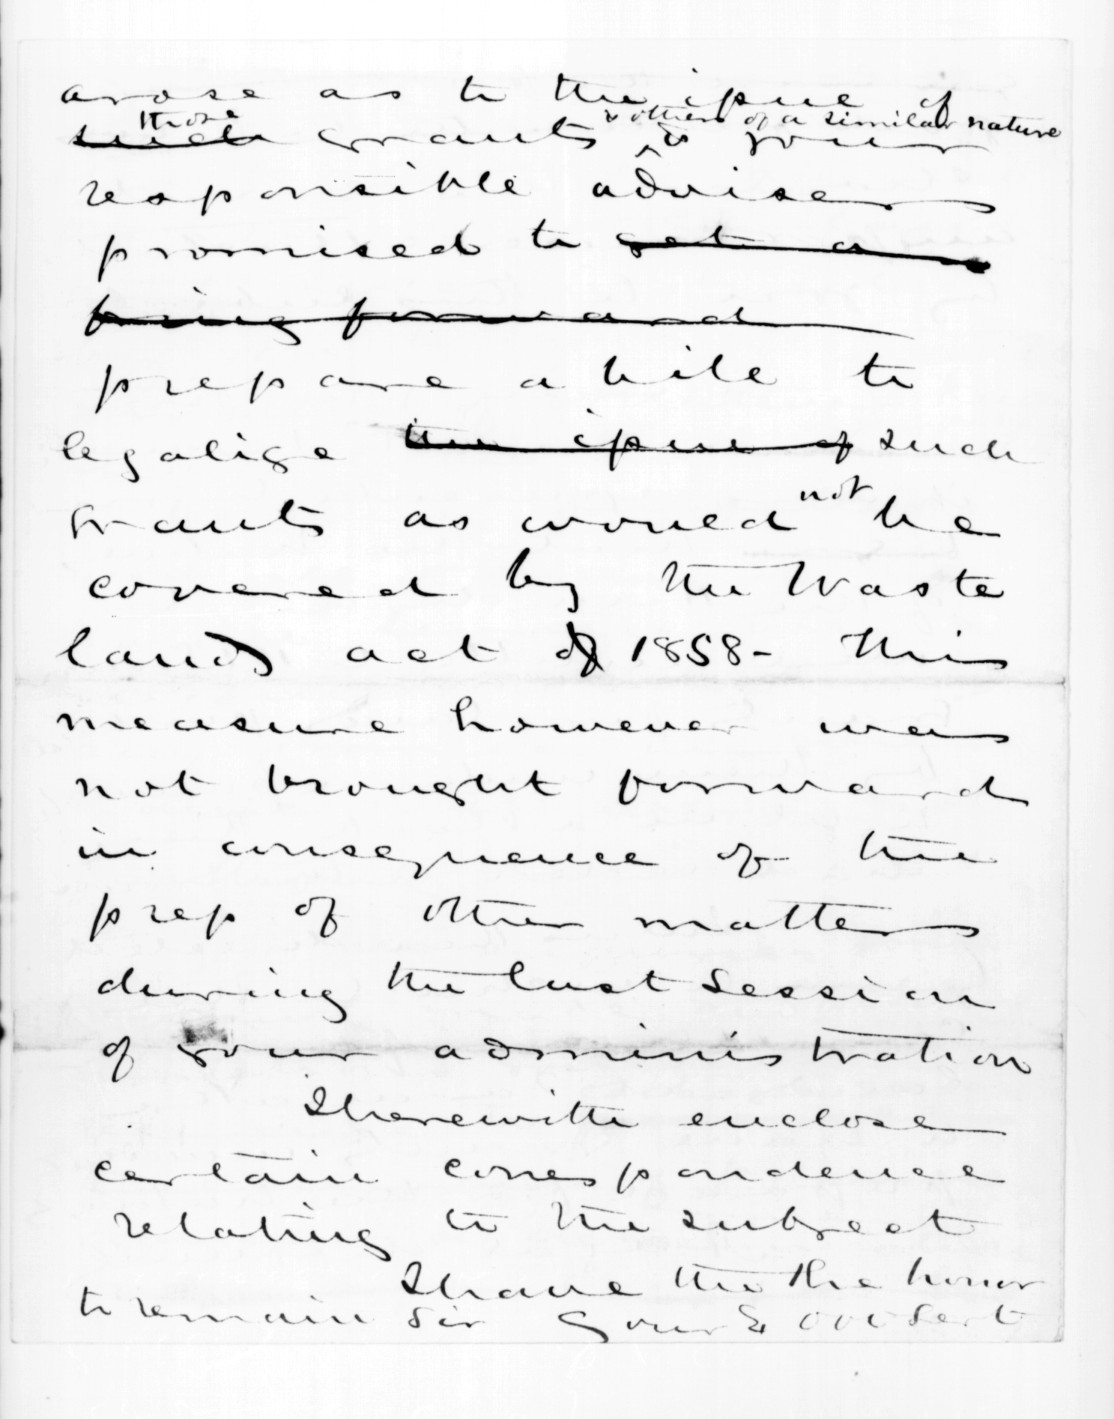 arose as to the issue of
those & others of a similar nature
such grants & your
responsible advisers
promised to get a
bring forward
prepare a bill to
legalize the issue of such
grants as would not be
covered by the Waste
lands act of 1858 - This
measure however was
not brought forward
in consequence of the
press of other matters
during the last Session
of your administration
I herewith enclose
certain correspondence
relating to the subject
I have the the honor
to remain Sir Your Obt Servt